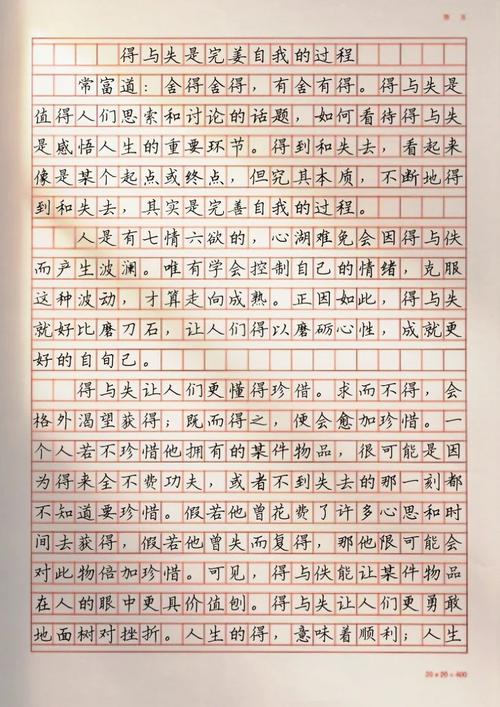 得与失是完姜自我的过程
常富道：舍得舍得，有舍有得。得与失是
值得人们思索和讨论的话题，如何看待得与失
是感悟人生的重要环节。得到和失去，看起来
像是某个起点或终点，但究其本质，不断地得
到和失去，其实是完善自我的过程。
人是有七情六欲的，心湖难免会因得与佚
而产生波澜。唯有学会控制自己的情绪，克服
这种波动，才算走向成熟。正因如此，得与失
就好比磨刀石，让人们得以磨砺心性，成就更
好的自旬己。
得与失让人们更懂得珍惜。求而不得，会
格外渴望获得；既而得之，便会愈加珍惜。一
个人若不珍惜他拥有的某件物品，很可能是因
为得来全不费功夫，或者不到失去的那一刻都
不知道要珍惜。假若他曾花费了许多心思和时
间去获得，假若他曾失而复得，那他很可能会
对此物倍加珍惜。可见，得与佚能让某件物品
在人的眼中更具价值刨。得与失让人们更勇敢
地面树对挫折。人生的得，意味着顺利；人生
20×20=400